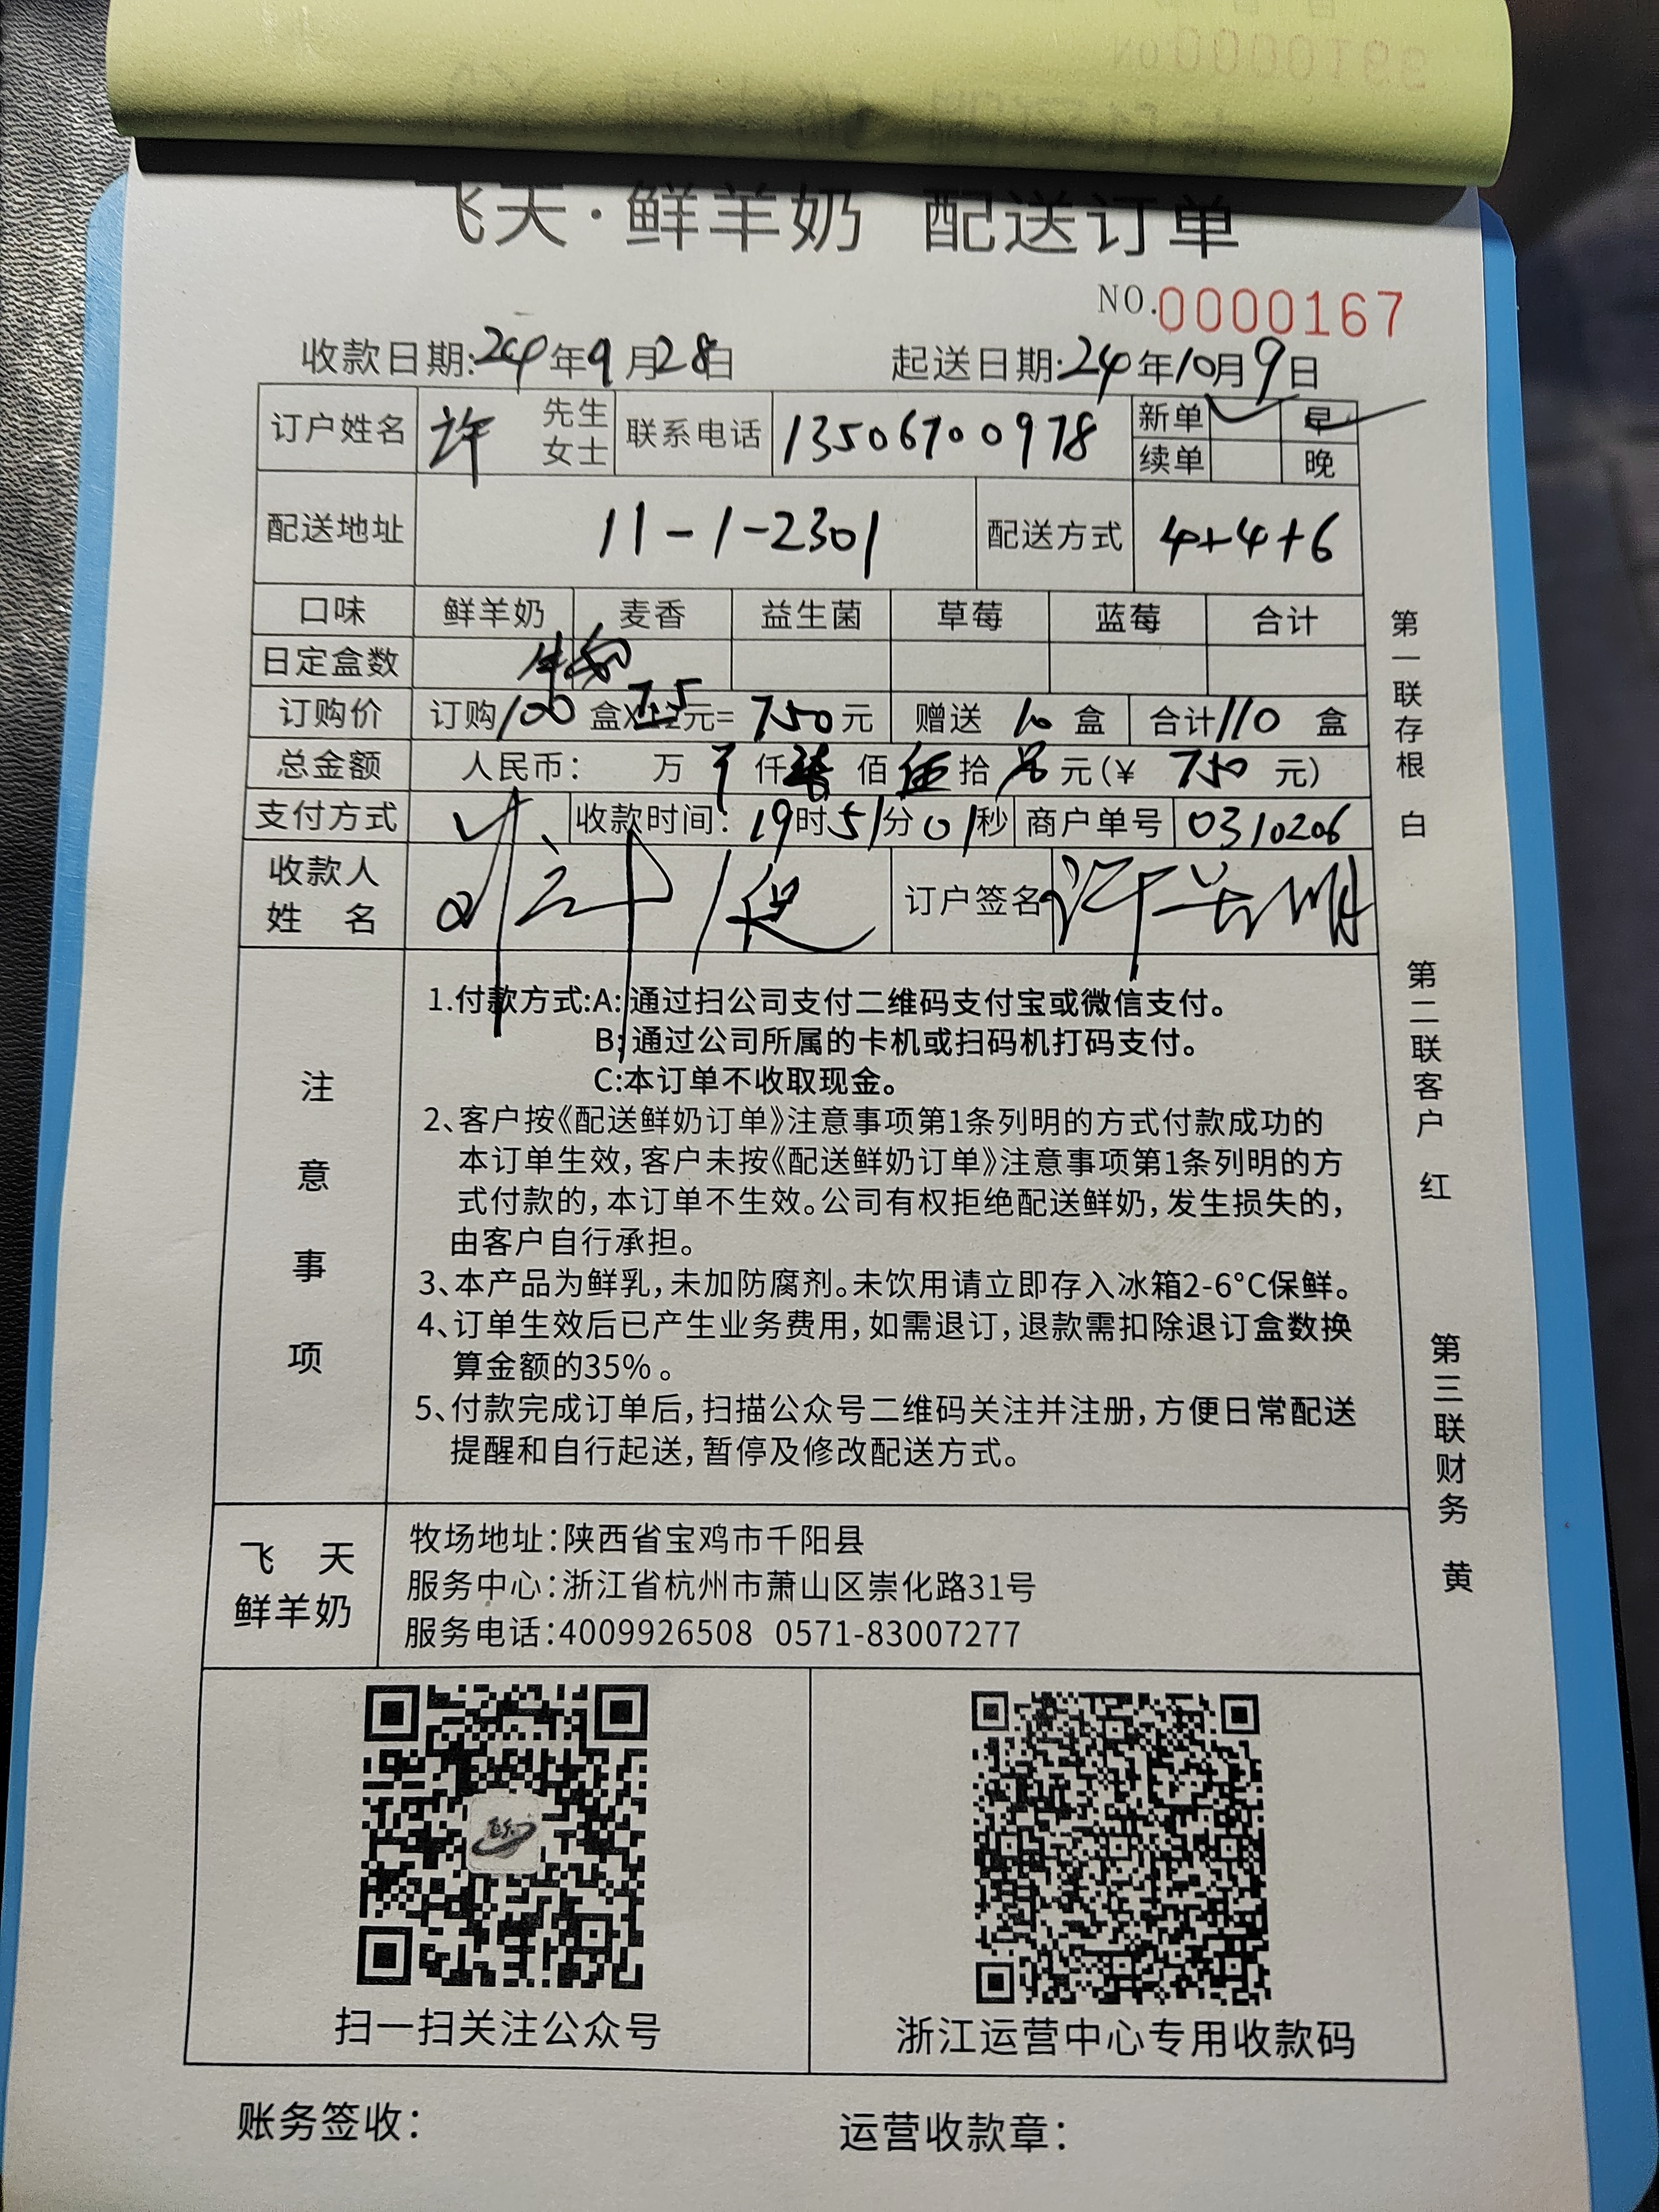 飞天·鲜羊奶 配送订单
NO.0000167
收款日期:24年9月28日 起送日期:24年10月9日
订户姓名 许 先生 女士 联系电话 13506700978 新单 ✓ 早 ✓
续单 晚
配送地址 11-1-2301 配送方式 4+4+6
口味 鲜羊奶 麦香 益生菌 草莓 蓝莓 合计
日定盒数 牛奶
订购价 订购100盒X7.5元=750元 赠送 10 盒 合计110 盒
总金额 人民币: 万 仟柒佰伍拾元(¥ 750 元)
支付方式 ✓ 收款时间:19时51分01秒 商户单号 0310206
收款人
姓 名 订户签名
注意事项
1.付款方式:A:通过扫公司支付二维码支付宝或微信支付。
B:通过公司所属的卡机或扫码机打码支付。
C:本订单不收取现金。
2、客户按《配送鲜奶订单》注意事项第1条列明的方式付款成功的
本订单生效,客户未按《配送鲜奶订单》注意事项第1条列明的方
式付款的,本订单不生效。公司有权拒绝配送鲜奶,发生损失的,
由客户自行承担。
3、本产品为鲜乳,未加防腐剂。未饮用请立即存入冰箱2-6°C保鲜。
4、订单生效后已产生业务费用,如需退订,退款需扣除退订盒数换
算金额的35%。
5、付款完成订单后,扫描公众号二维码关注并注册,方便日常配送
提醒和自行起送,暂停及修改配送方式。
飞 天
鲜羊奶
牧场地址:陕西省宝鸡市千阳县
服务中心:浙江省杭州市萧山区崇化路31号
服务电话:4009926508 0571-83007277
扫一扫关注公众号
浙江运营中心专用收款码
账务签收: 运营收款章:
第一联存根 白
第二联客户 红
第三联财务 黄